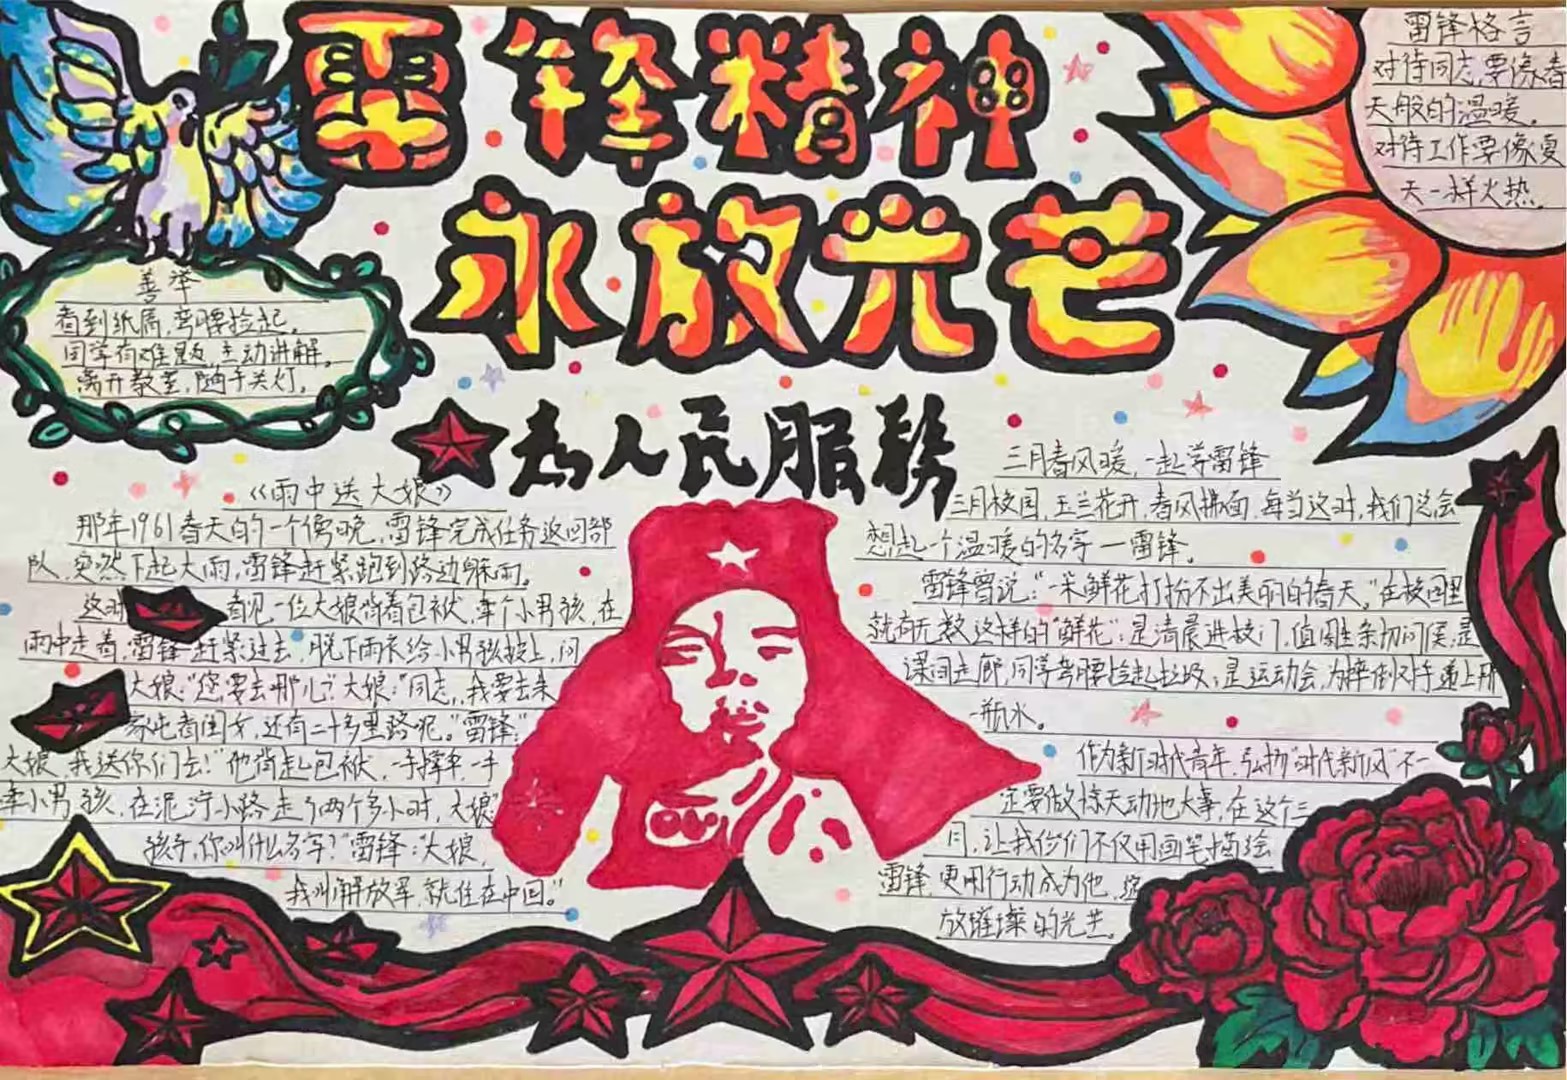 雷锋精神
永放光芒
雷锋格言
对待同志要像春
天般的温暖。
对待工作要像夏
天一样火热。
善举
看到纸屑,弯腰捡起。
同学有难题,主动讲解。
离开教室,随手关灯。
为人民服务
《雨中送大娘》
那年1961春天的一个傍晚,雷锋完成任务返回部
队,突然下起大雨,雷锋赶紧跑到路边躲雨。
这时 看见一位大娘背着包袱,牵个小男孩,在
雨中走着,雷锋赶紧过去,脱下雨衣给小男孩披上,问
大娘:"您要去哪儿?"大娘:"同志,我要去来
家屯看闺女,还有二十多里路呢。"雷锋:"
大娘,我送你们去!"他背起包袱,一手撑伞,一手
牵小男孩,在泥泞小路走了两个多小时,大娘"
孩子,你叫什么名字?"雷锋:"大娘,
我叫解放军,就住在中国。"
三月春风暖,一起学雷锋
三月校园,玉兰花开,春风拂面,每当这时,我们总会
想起一个温暖的名字—雷锋。
雷锋曾说:"一朵鲜花打扮不出美丽的春天。"在校园里
就有无数这样的"鲜花":是清晨进校门,值周生亲切问候;是
课间走廊,同学弯腰捡起垃圾;是运动会,为摔倒对手递上那
一瓶水。
作为新时代青年,弘扬"时代新风"不一
定要做惊天动地大事,在这个三
月,让我们不仅用画笔描绘
雷锋,更用行动成为他,绽
放璀璨的光芒。